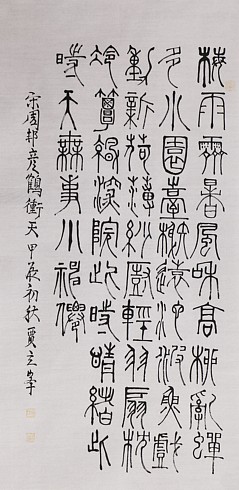 梅雨霽暑風和高柳亂蟬
多小園臺榭遠池波魚戲
動新荷薄紗廚輕羽扇枕
冷簟涼深院此時情緒此
時天無事小神僊
宋周邦彥鶴衝天 甲辰初秋 賈立